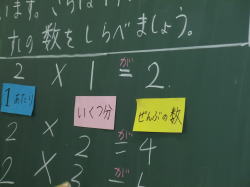 います。さらは
の数をしらべましょう。
2 × 1 が = 2
1あたり
いくつ分
ぜんぶの数
2 × 2 が = 4
2 × 3 が =